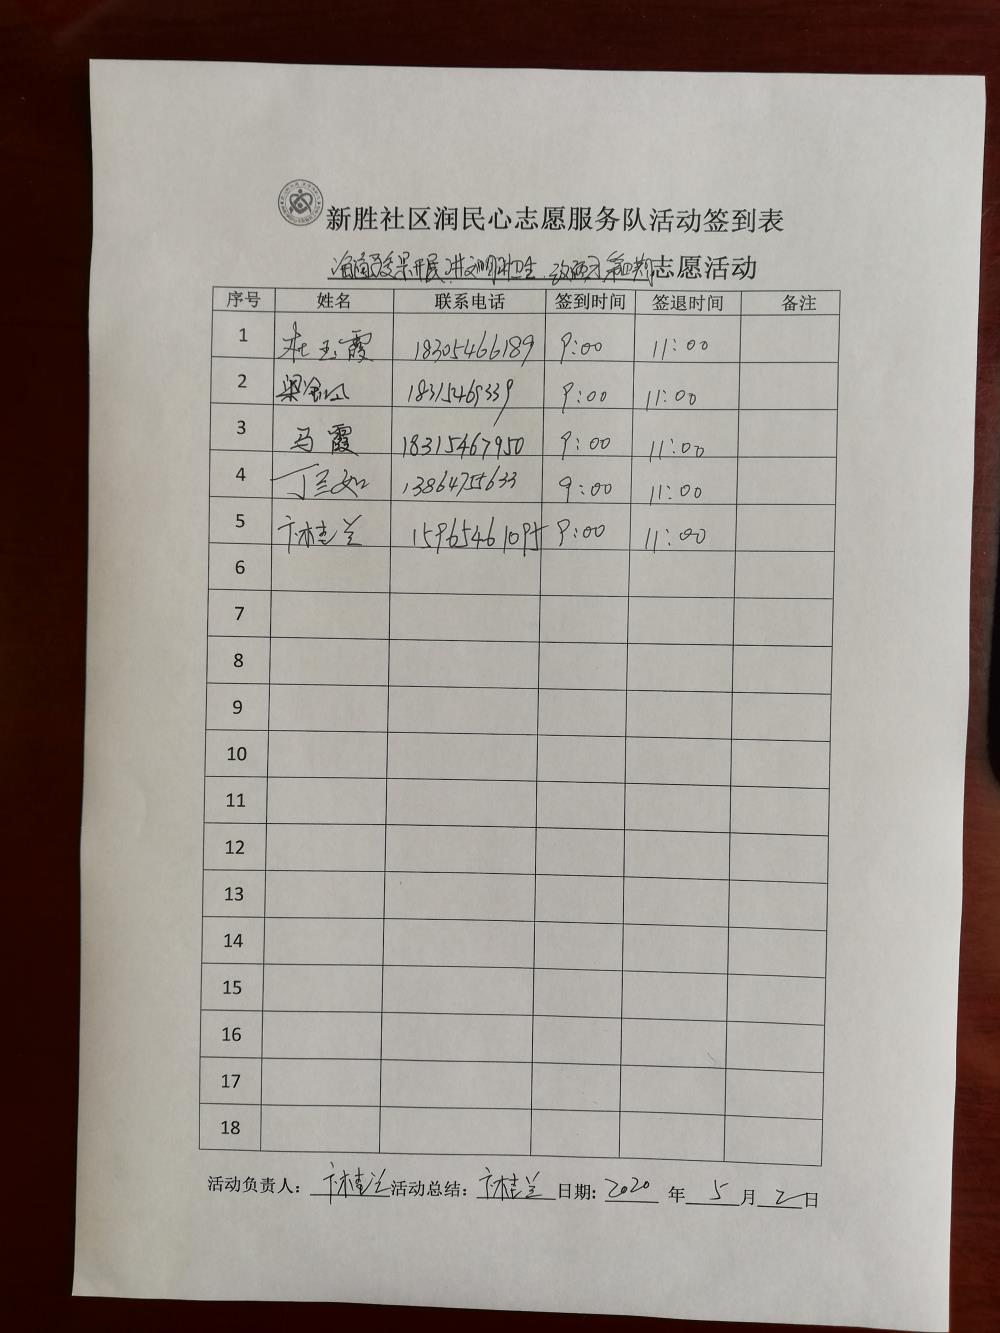 新胜社区润民心志愿服务队活动签到表
开展 讲文明 讲卫生 志愿活动
序号 姓名 联系电话 签到时间 签退时间 备注
1 杜玉霞 18305466189 9:00 11:00
2 梁 9:00 11:00
3 马霞 18315467950 9:00 11:00
4 丁兰如 13864755633 9:00 11:00
5 卞桂兰 15965461095 9:00 11:00
6
7
8
9
10
11
12
13
14
15
16
17
18
活动负责人：卞桂兰 活动总结：卞桂兰 日期：2020 年 5 月 2 日